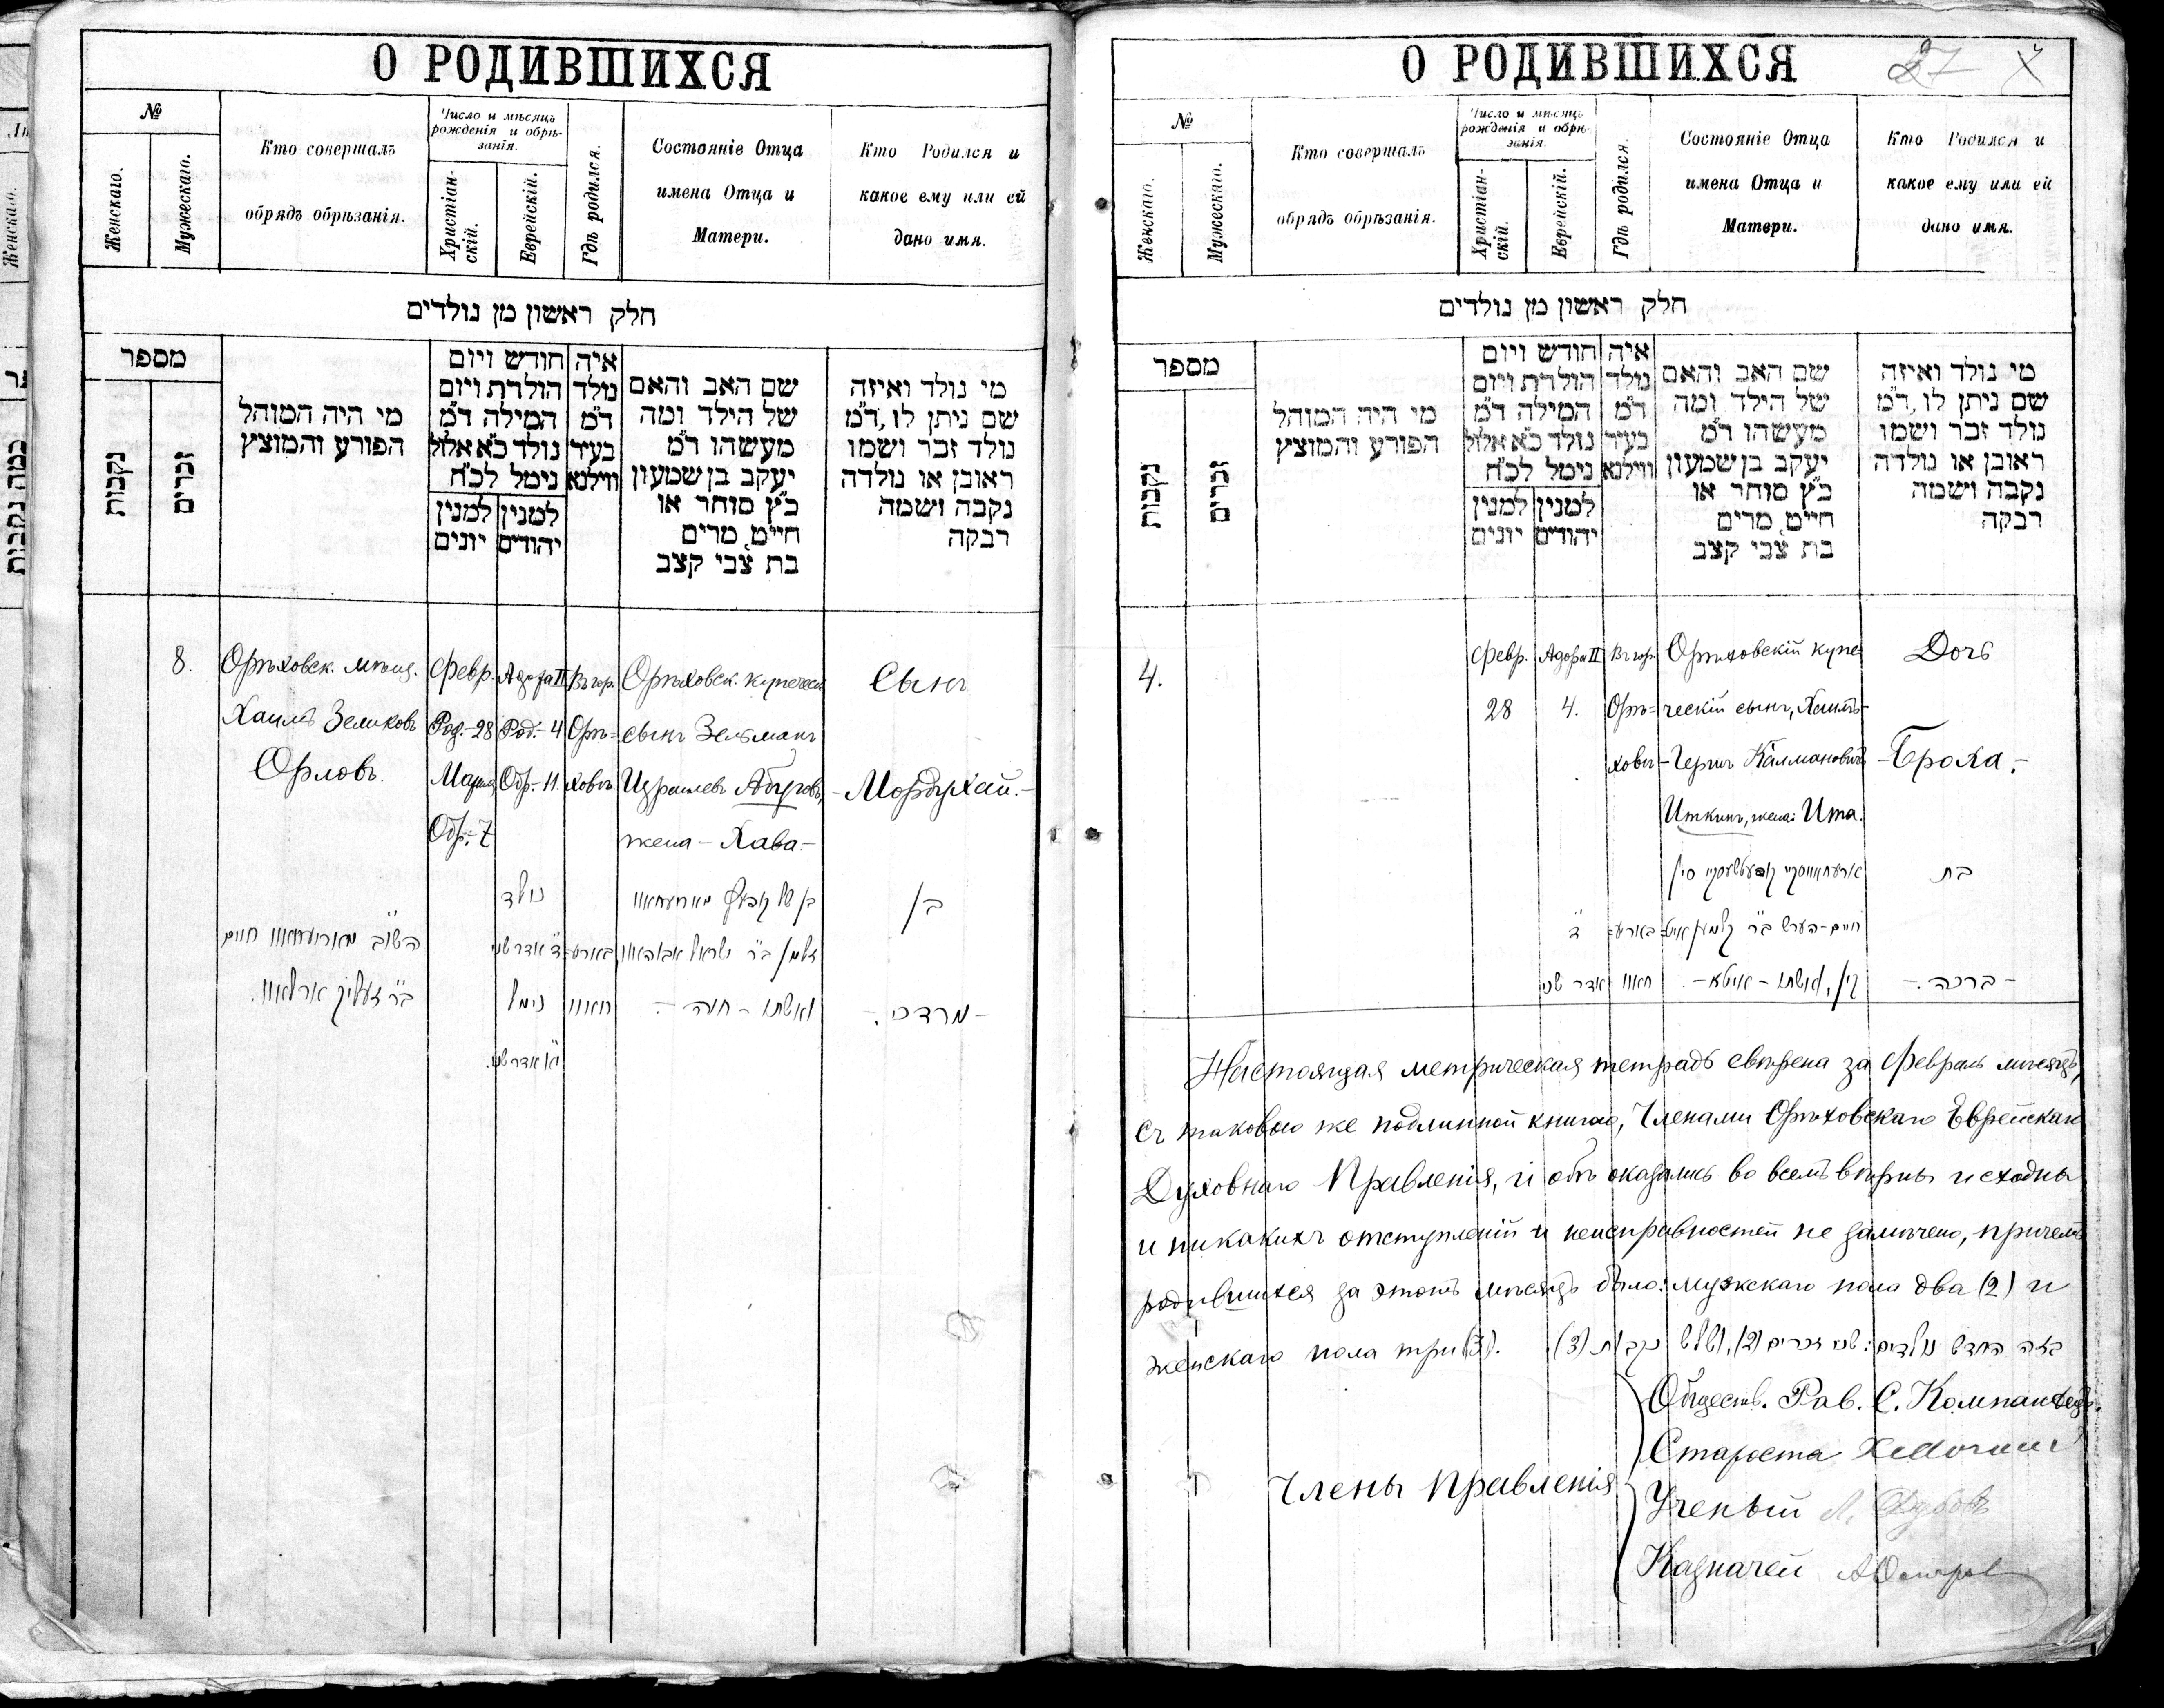 О РОДИВШИХСЯ
№
Женскаго.
Мужескаго.
Кто совершалъ
обрядъ обрѣзанія.
Число и мѣсяцъ
рожденія и обрѣ-
занія.
Христіан-
скій.
Еврейскій.
Гдѣ родился.
Состояніе Отца
имена Отца и
Матери.
Кто Родился и
какое ему или ей
дано имя.
חלק ראשון מן נולדים
מספר
נקבות
זכרים
מי היה המוהל
הפורע והמוצץ
חודש ויום
הולדת ויום
המילה ד"מ
נולד כ"א אלול
נימל לכ"ח
למנין יונים
למנין יהודים
איה
נולד
ד"מ
בעיר
ווילנא
שם האב והאם
של הילד ומה
מעשהו ד"מ
יעקב בן שמעון
כ"ץ סוחר או
חייט, מרים
בת צבי קצב
מי נולד ואיזה
שם ניתן לו, ד"מ
נולד זכר ושמו
ראובן או נולדה
נקבה ושמה
רבקה
8.
Орѣховск. мѣщ.
Хаимъ Зеликовъ
Орловъ.
Февр.
Род.-28
Марта
Обр.-7
Адора II
Род.-4
Обр.-11.
Въ гор.
Орѣ=
ховѣ.
Орѣховск. купеческ.
сынъ Зельманъ
Израилевъ Абуговъ,
жена - Хава.-
Сынъ
-Мордухай.-
השו"ב חיים
ב"ר זעליק ארלאוו.
נולד
ד' אדר שני
נימל
י"א אדר שני.
בארע=
חאוו
זלמן ב"ר ישראל
ואשתו - חוה -.
בן
-מרדכי.-
О РОДИВШИХСЯ
27
№
Женскаго.
Мужескаго.
Кто совершалъ
обрядъ обрѣзанія.
Число и мѣсяцъ
рожденія и обрѣ-
занія.
Христіан-
скій.
Еврейскій.
Гдѣ родился.
Состояніе Отца
имена Отца и
Матери.
Кто Родился и
какое ему или ей
дано имя.
חלק ראשון מן נולדים
מספר
נקבות
זכרים
מי היה המוהל
הפורע והמוצץ
חודש ויום
הולדת ויום
המילה ד"מ
נולד כ"א אלול
נימל לכ"ח
למנין יונים
למנין יהודים
איה
נולד
ד"מ
בעיר
ווילנא
שם האב והאם
של הילד ומה
מעשהו ד"מ
יעקב בן שמעון
כ"ץ סוחר או
חייט, מרים
בת צבי קצב
מי נולד ואיזה
שם ניתן לו, ד"מ
נולד זכר ושמו
ראובן או נולדה
נקבה ושמה
רבקה
4.
Февр.
28
Адора II
4.
Въ гор.
Орѣ=
ховѣ
Орѣховскій купе
ческій сынъ, Хаимъ-
-Гершъ Калмановичъ
Иткинъ, жена: Ита.
Дочь
-Броха.-
ד'
אדר שני
בארע=
חאוו
חיים-הערש ב"ר קלמן איט=
קין, ואשתו - איטא -.
בת
-ברכה.-
Настоящая метрическая тетрадь свѣрена за Февраль мѣсяцъ,
съ таковою же подлинной книгою, Членами Орѣховскаго Еврейскаго
Духовнаго Правленія, и обѣ оказались во всемъ вѣрны и сходны
и никакихъ отступленій и неисправностей не замѣчено, причемъ
родившихся за этотъ мѣсяцъ было: мужскаго пола два (2) и
женскаго пола три (3).
בזה החדש נולדים: שני זכרים (2), ושלש נקבות (3).
Члены Правленія
Обществ. Рав. С. Компанѣецъ.
Староста
Ученый Л. Дубовъ
Казначей